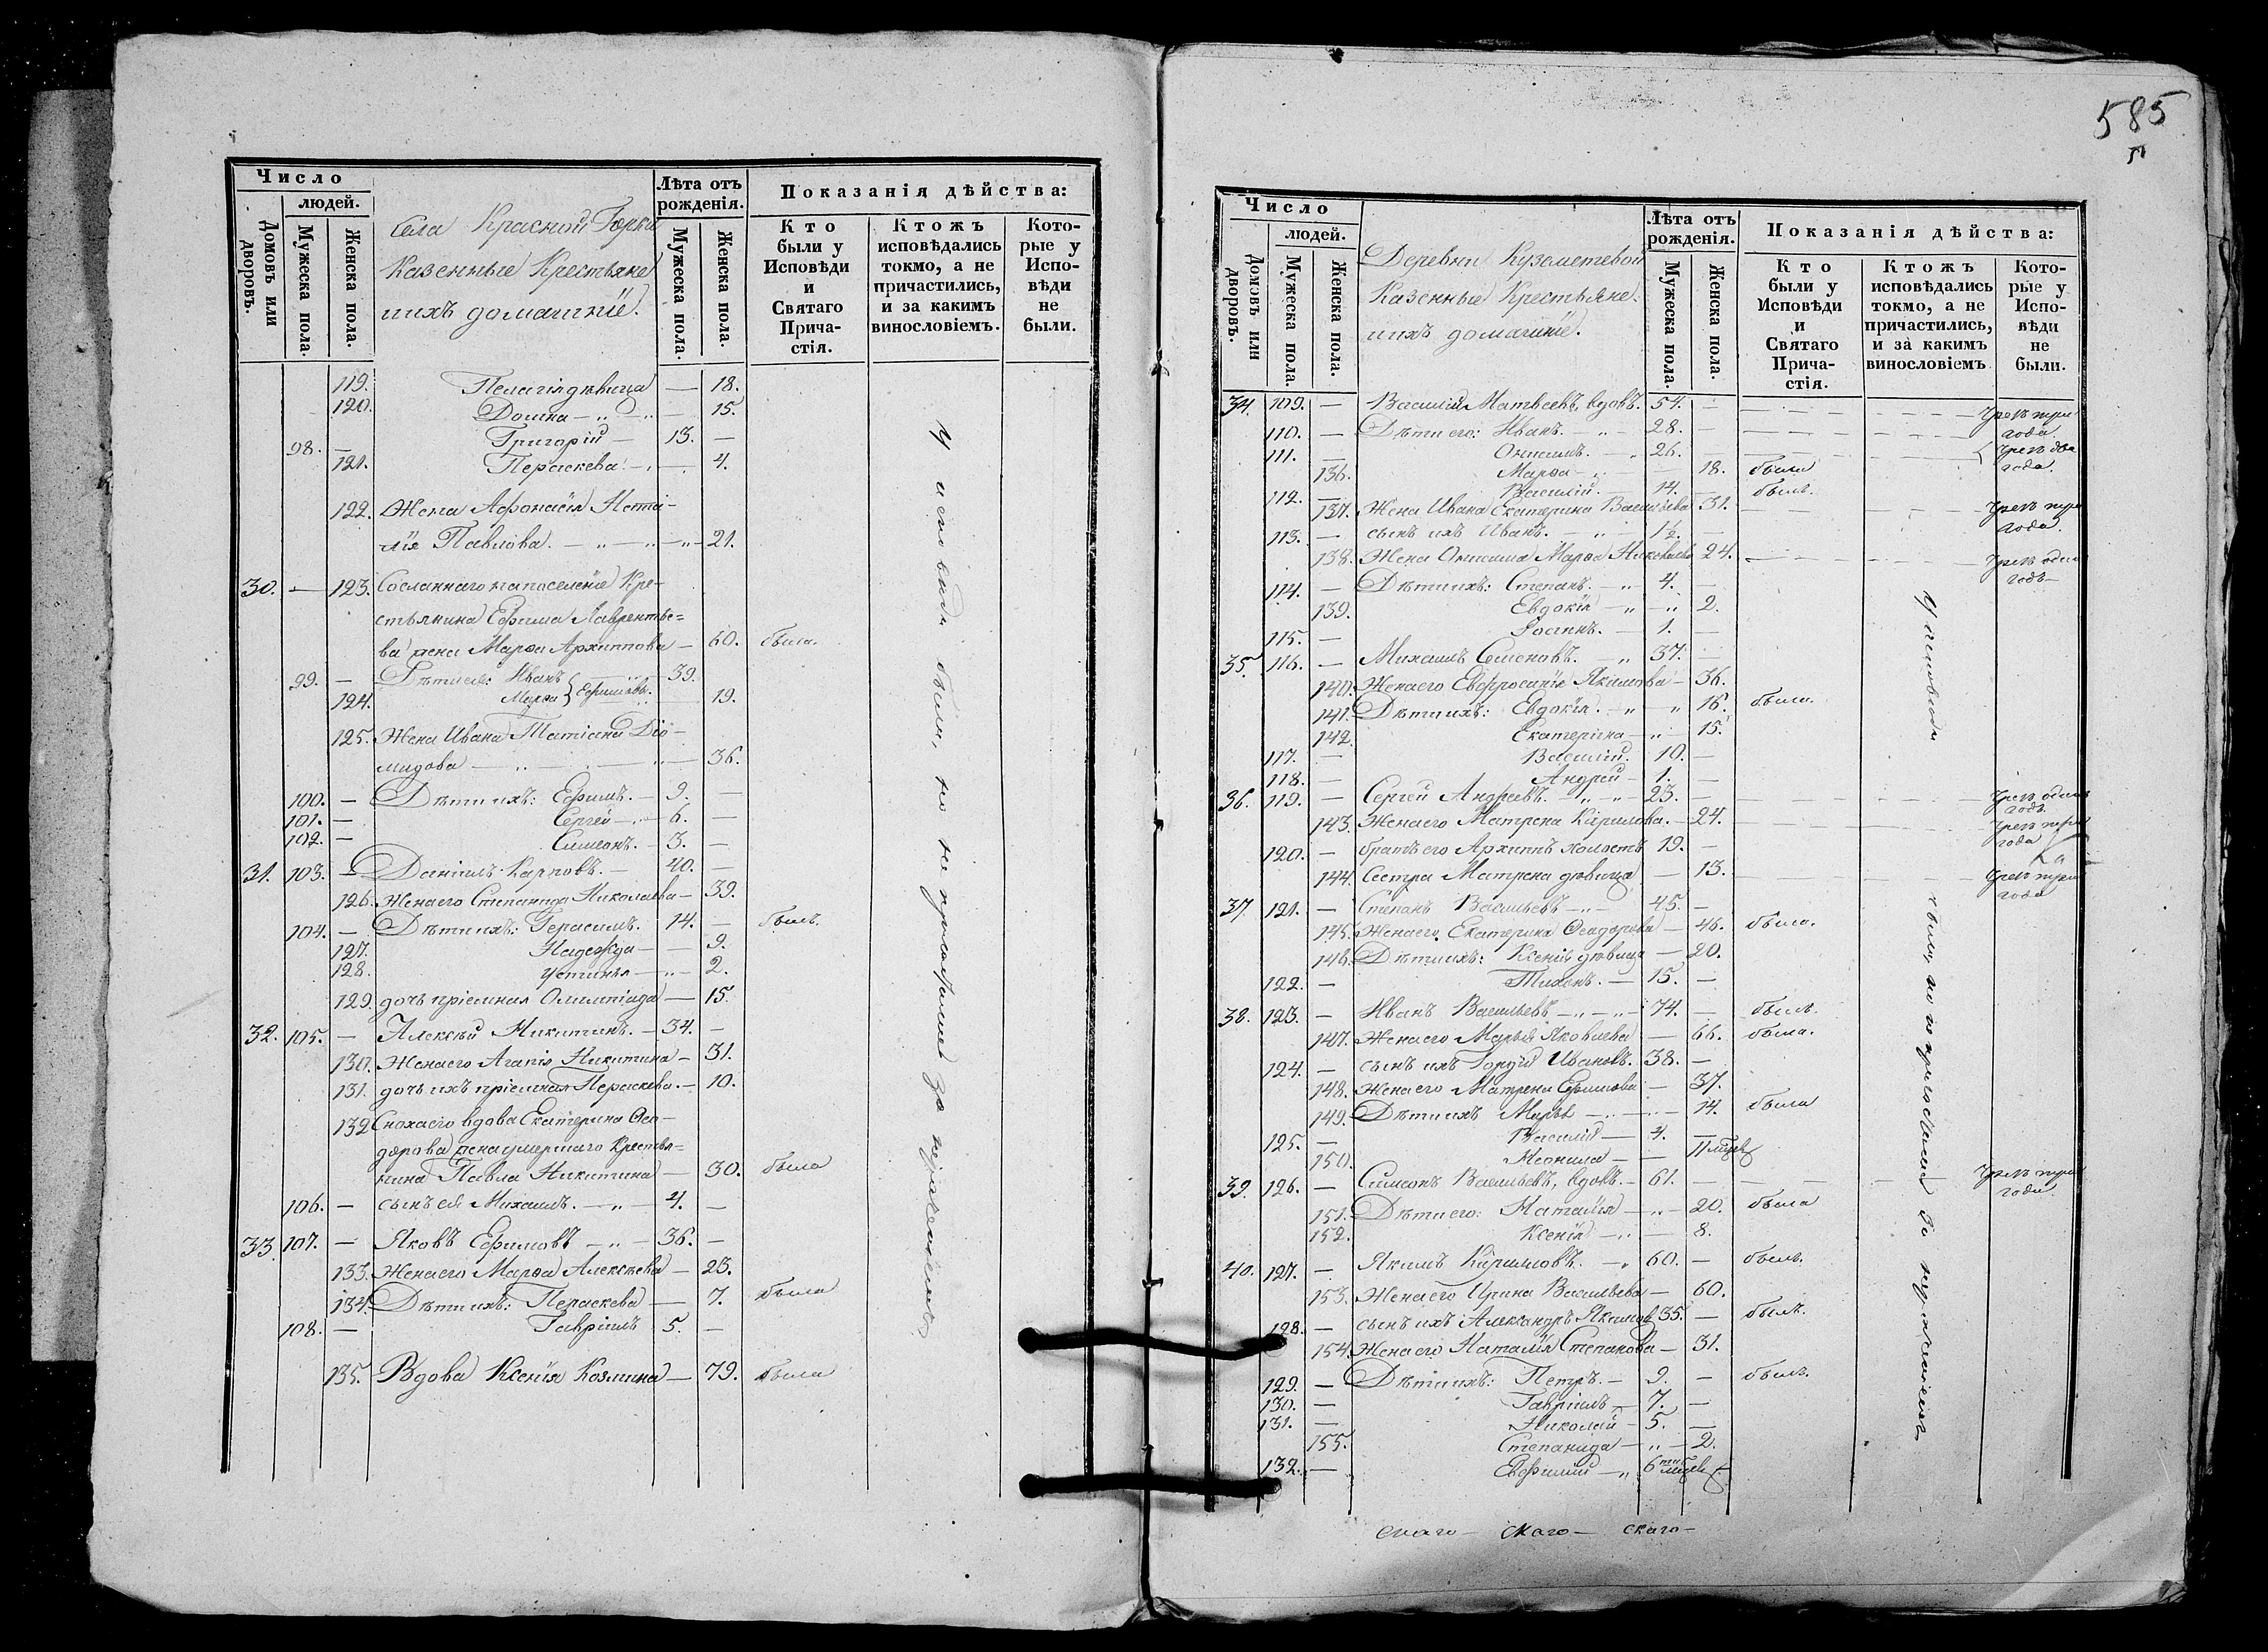 Число
людей.
Домовъ или дворовъ.
Мужеска пола.
Женска пола.
Села Красной Горки
Казенные Крестьяне
ихъ домашніе.
Лѣта отъ рожденія.
Мужеска пола.
Женска пола.
Показанія дѣйства:
Кто были у Исповѣди и Святаго Причастія.
Ктожъ исповѣдались токмо, а не причастились, и за какимъ винословіемъ.
Которые у Исповѣди не были.
119. Пелагія дѣвица — 18.
120. Домна — 15.
98. — Григорій — 13. —
121. Пераскева — 4.
122. Жена Афонасія Ната-
лія Павлова. — 21.
30. — 123. Сосланнаго на поселеніе Кре-
стьянина Ефима Лаврентье=
ва жена Марѳа Архиппова — 60. была.
99. — Дѣти ея: Иванъ 39.
124. Марѳа Ефимовы. 19.
125. Жена Ивана Татіана Діо-
мидова — 36.
100. — Дѣти ихъ: Ефимъ. — 9. —
101. — Сергей — 6. —
102. — Симеонъ. — 3. —
31. 103. — Даніилъ Карповъ. — 40. —
126. Жена его Степанида Николаева — 39.
104. — Дѣти ихъ: Герасимъ. 14. — былъ.
127. Надежда — 9.
128. Устинья — 2.
129. дочь пріемная Олимпіада — 15.
32. 105. — Алексѣй Никитинъ. — 34. —
130. Жена его Агапія Никитина — 31.
131. дочь ихъ пріемная Пераскева. — 10.
132. Сноха его вдова Екатерина Ѳео-
дорова жена умершаго Крестья=
нина Павла Никитина — 30. была
106. — сынъ ея Михаилъ. — 4. —
33. 107. — Яковъ Ефимовъ — 36. —
133. Жена его Марѳа Алексѣева — 23.
134. Дѣти ихъ: Пераскева — 7. была
108. — Гавріилъ 5. —
135. Вдова Ксенія Козмина — 79. была
У исповѣди были, но не причастились за нераченіемъ
585
Число
людей.
Домовъ или дворовъ.
Мужеска пола.
Женска пола.
Деревни Куземетевой
Казенные Крестьяне.
ихъ домашніе.
Лѣта отъ рожденія.
Мужеска пола.
Женска пола.
Показанія дѣйства:
Кто были у Исповѣди и Святаго Причастія.
Ктожъ исповѣдались токмо, а не причастились, и за какимъ винословіемъ
Которые у Исповѣди не были.
34. 109. — Василій Матвеевъ, вдовъ. 54. — Чрезъ три года.
110. — Дѣти его: Иванъ. — 28. —
111. — Онисимъ. — 26. — Чрезъ два года.
136. Марѳа — 18. была
112. — Василій. — 14. — былъ.
137. Жена Ивана Екатерина Васильева 31. Чрезъ три года.
113. — сынъ ихъ Иванъ. — 1½. —
138. Жена Онисима Марѳа 24. Чрезъ одинъ годъ —
114. — Дѣти ихъ: Степанъ. — 4. —
139. Евдокія — 2.
115. — Іоаннъ. — 1. —
35. 116. — Михаилъ Семеновъ. — 37. —
140. Жена его Евфросинія Якимова — 36.
141. Дѣти ихъ: Евдокія. — 16. была.
142. Екатерина — 15.
117. — Василій. 10. —
118. — Андрей — 1. —
36. 119. — Сергей Андреевъ. — 23. — Чрезъ одинъ годъ.
143. Жена его Матрена Кирилова. — 24. Чрезъ три года
120. — братъ его Архиппъ холостъ 19. —
144. Сестра Матрена дѣвица — 13. Чрезъ три года
37. 121. — Степанъ Васильевъ — 45. —
145. Жена его Екатерина Ѳеодорова — 46. была.
146. Дѣти ихъ: Ксенія дѣвица — 20.
122. — Тихонъ. — 15. —
38. 123. — Иванъ Васильевъ — 74. — былъ.
147. Жена его Марья Яковлева — 66. была.
124. — сынъ ихъ Гордій Ивановъ. 38. —
148. Жена его Матрена Ефимова — 37.
149. Дѣти ихъ Марья — 14. была
125. — Василій — 4. —
150. Неонила — 11 мцев
39. 126. — Симеонъ Васильевъ, вдовъ. — 61. — Чрезъ три года.
151. Дѣти его: Наталія — 20. была
152. Ксенія — 8.
40. 127. — Якимъ Кириловъ. — 60. — былъ.
153. Жена его Ирина Васильева — 60.
128. — сынъ ихъ Александръ Якимовъ 35. — былъ.
154. Жена его Наталія Степанова — 31.
129. — Дѣти ихъ: Петръ. — 9. — былъ.
130. — Гавріилъ — 7. —
131. — Николай — 5. —
155. Степанида — 2.
132. — Евфимій — 6ти мцев
У исповѣди были, но не причастились за нераченіемъ
скаго — скаго — скаго —